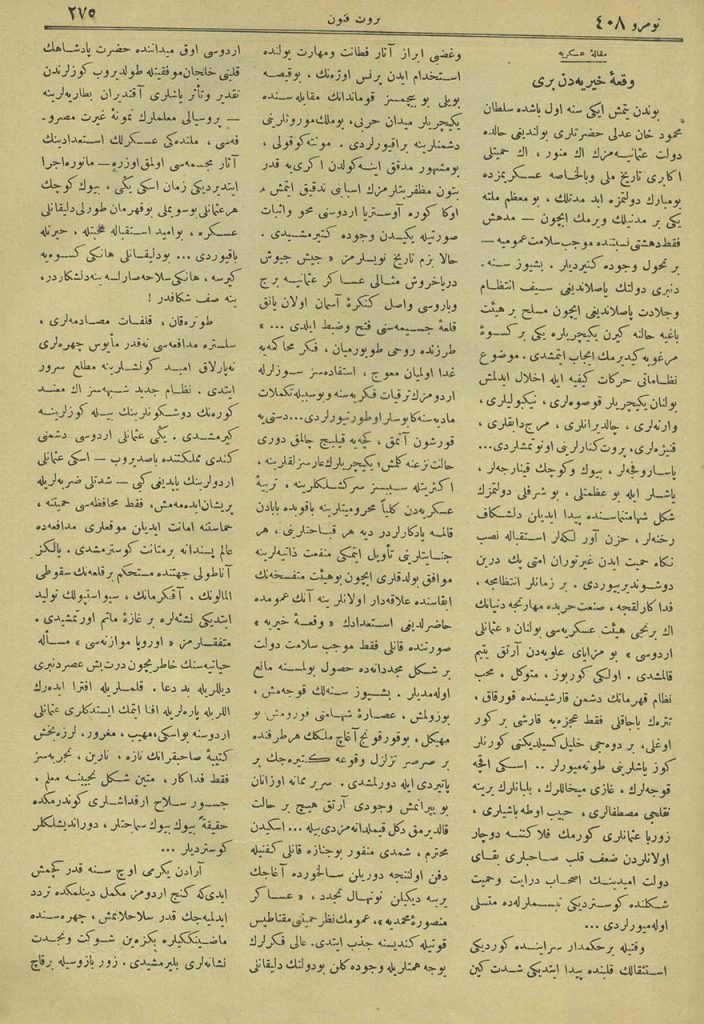 نومرو ٤٠٨
ثروت فنون
٢٧٥
مقالهٔ عسكریه
وقعهٔ خیریه‌دن بری
بوندن یتمش ایكی سنه اول باشده سلطان
محمود خان عدلی حضرتلری بولندیغی حالده
دولت عثمانیه‌مزك اك منور، اك حمیتلی
اكابری تاریخ ملی وبالخاصه عسكریمزده
بومبارك دولتمزه ابد مدتلك، بو معظم ملته
یكی بر مدنیلك ویرمك ایچون — مدهش
فقط دهشتی نسبتنده موجب سلامت عمومیه —
بر تحول وجوده كتیردیلر. بشیوز سنه‌
دنبری دولتك یاصلاندیغی سیف انتظام
وجلادت یاصلاندیغی ایچون مسلح بر هیئت
باغیه حالنه كیرن یكیچریلره یكی بر كسوهٔ
مرغوبه كیدیرمك ایجاب ایتمشدی. موضوع
نظاماتی حركات كیفیه ایله اخلال ایدلمش
بولنان یكیچریلر قوصوه‌لری، نیكبولیلری،
وارنه‌لری، چالدیرانلری، مرج دابقلری،
قنیژه‌لری، پروت كنارلرینی اونوتمشلردی...
پاساروفجه‌لر، بیوك وكوچك قینارجه‌لر،
یاشلر ایله بو عظمتلی، بو شرفلی دولتمزك
شكل شهامتنماسنده پیدا ایدیلن دلشكاف
رخنه‌لر، حزن آور لكه‌لر استقباله نصب
نكاه حمیت ایدن غیرتوران امتی پك درین
دوشوندیریوردی. بر زمانلر انتظامجه،
فداكارلقجه، صنعت حربده مهارتجه دنیانك
اك برنجی هیئت عسكریه‌سی بولنان «عثمانلی
اردوسی» بو مزایای علویه‌دن آرتق یتیم
قالمشدی. اولكی كوربوز، متوكل، محب
نظام قهرمانك دشمن قارشیسنده قورقاق،
تتره‌ك باجاقلی فقط عجزه‌یه قارشی بر كور
اوغلی، بر دوه‌جی خلیل كسیلدیكنی كورنلر
كوز یاشلرینی طوته‌میورلر .. اسكی اقچه
قوجه‌لرك، غازی میخاللرك، بلبانلرك یرینه
نقلجی مصطفالری، حبیب اوطه باشیلری،
زوربا عثمانلری كورمك فلاكتنه دوچار
اولانلردن ضعف قلب صاحبلری بقای
دولت امیدینك اصحاب درایت وحمیت
شكلنده كوستردیكی تبسملره‌ده متسلی
اوله‌میورلردی...
وقتیله بر حكمدار سراینده كوردیكی
استثقالك قلبنده پیدا ایتدیكی شدت كین
وغضبی ابراز آثار فطانت ومهارت یولنده
استخدام ایدن پرنس اوژه‌نك، بوقیصه
بویلی بو بیچمسز قوماندانك مقابله‌سنده
یكیچریلر میدان حربی، بوملك موروثلرینی
دشمنلرینه براقیورلردی. مونته‌كوقولی،
بومشهور مدقق اینه‌كولدن اكری‌یه قدر
بتون مظفریتلرمزك اسبابنی تدقیق ایتمش و
اوكا كوره آوستریا اردوسی محو واثبات
صورتیله یكیدن وجوده كتیرمشیدی.
حالا بزم تاریخ نویسلرمز «جیش جیوش
دریاخروش مثالی عساكر عثمانیه برج
وباروسی واصل كنكرهٔ آسمان اولان یانق
قلعهٔ جسیمه‌سنی فتح وضبط ایلدی...»
طرزنده روحی طویورمیان، فكر محاكمه‌یه
غدا اولمیان معوج، استفاده‌سز سوزلرله
اردومزك ترقیات فكریه‌سنه وبوسببله تكملات
مادیه‌سنه كابوسلر اوطورتیورلردی... دستی‌یه
قورشون آتمق، كچه‌یه قیلیچ چالمق دوری
حالت نزعنه كلمش؛ یكیچریلرك عارسزلقلرینه،
اكثریتله سببسز سركشلكلرینه، تربیهٔ
عسكریه‌دن كلیاً محرومیتلرینه باقوبده بابادن
قالمه یادكارلردر دیه هر قباحتلرینی، هر
جنایتلرینی تأویل ایتمكی منفعت ذاتیه‌لرینه
موافق بولدقلری ایچون بوهیئت متفسخه‌نك
ابقاسنده علاقه‌دار اولانلر ینه آنك عمومده
حاضرلدیغی استعدادك «وقعهٔ خیریه»
صورتنده قانلی فقط موجب سلامت دولت
بر شكل مجددانه‌ده حصول بولمسنه مانع
اوله‌مدیلر. بشیوز سنه‌لك قوجه‌مش،
بوزولمش، عصارهٔ شهامتی قورومش بو
مهیكل، بوقورقونج آغاج ملكك هر طرفنده
بر صرصر تزلزل وقوعه كتیره‌جك بر
پاتیردی ایله دورلمشدی. سربرمانه اوزانان
بو ییپرانمش وجودی آرتق هیچ بر حالت
قالدیرمق دكل قیملداته‌مزدی بیله... اسكیدن
محترم، شمدی منفور بوجنازه قانلی كفنیله
دفن اولنجه دوریلن سالخورده آغاجك
یرینه دیكیلن نونهال تجدد، «عساكر
منصورهٔ محمدیه»، عمومك نظر حمیتنی مقناطیس
قوتیله كندیسنه جذب ایتدی. عالی فكرلرك
یوجه همتلریله وجوده كلن بودولتك دلیقانلی
اردوسی اوق میداننده حضرت پادشاهك
قلبنی خلجان موفقیتله طولدیروب كوزلرندن
تقدیر وتأثر یاشلری آقیدیران بطاریه‌لرینه
— پروسیالی معلملرك نمونهٔ غیرت مصرو-
فه‌سی، ملنده‌كی عسكرلك استعدادینك
آثار مجسمه‌سی اولمق اوزره — مانوره اجرا
ایتدیردیكی زمان اسكی یكی، بیوك كوچك
هر عثمانلی بوسویملی بوقهرمان طورلی دلیقانلی
عسكره، بوامید استقباله محبتله، حیرتله
باقیوردی... بودلیقانلی هانكی كسوه‌یه
كیرسه، هانكی سلاحه صارلسه ینه دلشكاردر،
ینه صف شكافدر!
طوترقان، قلفات مصادمه‌لری،
سلستره مدافعه‌سی نه‌قدر مأیوس چهره‌لری
نه‌پارلاق امید كونشلرینه مطلع سرور
ایتدی. نظام جدید شبهه‌سز اك معند
كوره‌نك دوشكونلرینك بیله كوزلرینه
كیرمشدی. یكی عثمانلی اردوسی دشمنی
كندی مملكتنده باصدیروب — اسكی عثمانلی
اردولرینك یابدیغی كبی — شدتلی ضربه‌لریله
پریشان ایده‌مه‌مش، فقط محافظه‌سی حمیتنه،
حماستنه امانت ایدیلن موقعلری مدافعه‌ده
عالم پسندانه برمتانت كوسترمشدی. یالكز
آناطولی جهتنده مستحكم برقلعه‌نك سقوطی
المالونك، آقكرمانك، سیواستپولك تولید
ایتدیكی نشئه‌لره بر غازهٔ ماتم اورتمشیدی.
متفقلرمز «اوروپا موازنه‌سی» مسأله
حیاتیه‌سنك خاطریچون درت بش عصردنبری
دیللریله بد دعا، قلملریله افترا ایده‌رك
اللریله پاره‌لریله افنا ایتمك ایستدكلری عثمانلی
اردوسنه بواسكی، مهیب، مغرور، لرزه‌بخش
كتیبهٔ صاحبقرانك تازه، نازین، تجربه‌سز
فقط فداكار، متین شكل نجیبنه معلم،
جسور سلاح ارقداشلری كوندرمكده
حقیقةً بیوك بیوك سماحتلر، دوراندیشلكلر
كوستردیلر...
آرادن یكرمی اوچ سنه قدر كچمش
ایدی‌كه كنج اردومز مكمل دینلمكده تردد
ایدلمیه‌جك قدر سلاحلانمش، چهره‌سنده
ماضینككیلره بكزه‌ین شوكت ونجدت
نشانه‌لری بلیرمشیدی. زور بازوسیله برقاچ